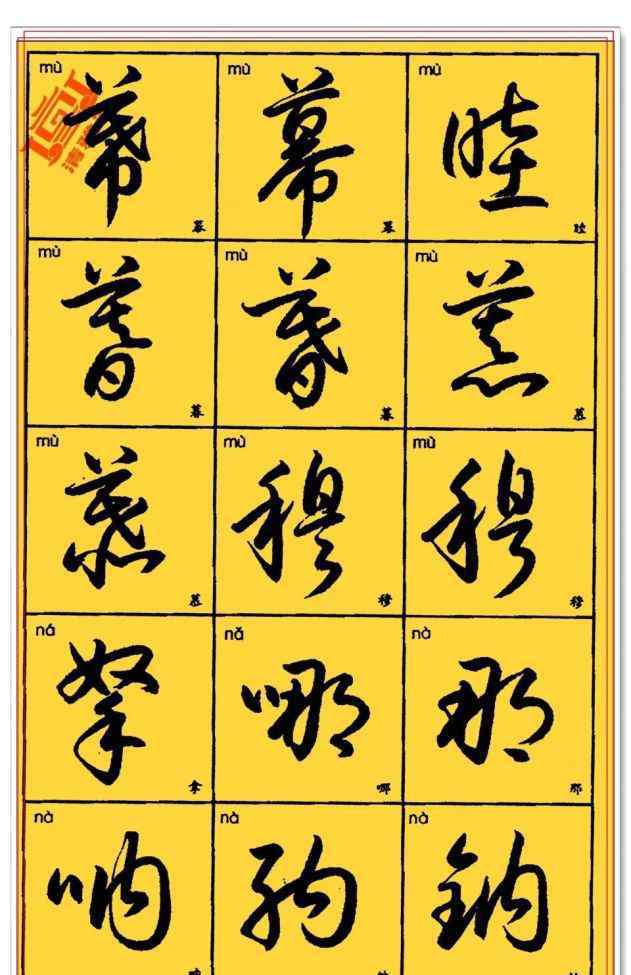 mù mù mù
幕 幕 睦
幕 幕 睦
mù mù mù
暮 暮 慕
暮 暮 慕
mù mù mù
慕 穆 穆
慕 穆 穆
ná nǎ nà
拏 哪 那
拿 哪 那
nà nà nà
吶 納 鈉